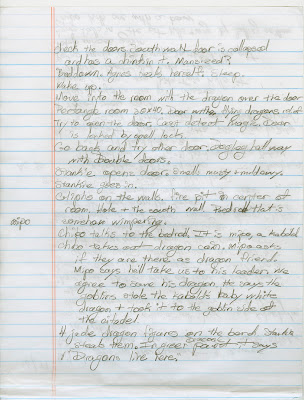 check the doors, south wall door is collapsed
and has a chink in it. Mansized?
Beddown. Agnes heals herself, sleep.
Wake up.
Move into the room with the dragon over the door
Rectangle room 30x40. Door on the
Try to open the door, cast detect magic. Door
is locked by spell lock.
Go back and try other door, zigzag hallway
with double doors.
Starkie opens door. Smells musty + mildewy.
Starkie goes in.
Glyphs on the walls, fire pit in center of
room, hole + the south wall that is
somehow wimpering.
mipo
Chipo talks to the bedroll. It is mipo, a kobold
Chipo takes out dragon coin. Mipo asks
if they are there as dragon friend.
Mipo says he'll take us to his leader. We
agree to save his dragon. He says the
goblins stole the kobolds baby white
dragon + took it to the goblin side of
the citadel
4 jade dragon figures on the bord
steals them. In green it says
"Dragons live here."